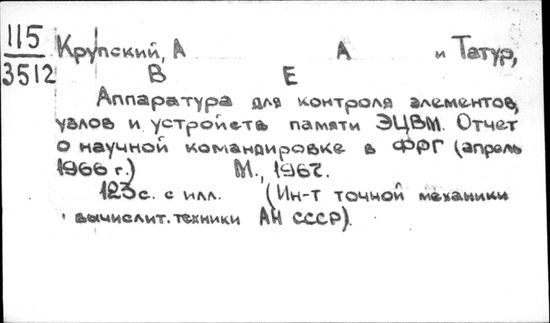 115
3512
Крупский, А А и Татур,
В Е
Аппаратура для контроля элементов,
узлов и устройств памяти ЭЦВМ. Отчет
о научной командировке в ФРГ (апрель
1966 г.) М., 1967.
123с. с илл. (Ин-т точной механики
и вычислит. техники АН СССР).